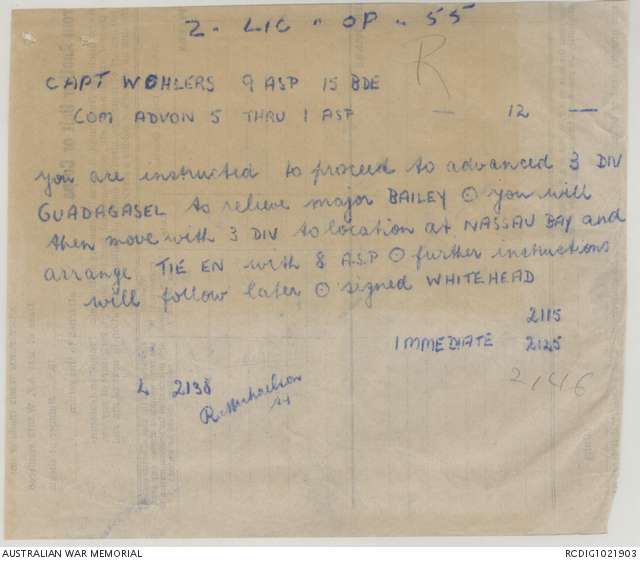 2 - LIC " OP " 55
R
CAPT WOHLERS 9 ASP 15 BDE
COM ADVON 5 THRU 1 ASP — 12 —
you are instructed to proceed to advanced 3 DIV
GUADAGASEL to relieve major BAILEY ⊙ you will
then move with 3 DIV to location at NASSAU BAY and
arrange TIE EN with 8 ASP ⊙ further instructions
will follow later ⊙ signed WHITEHEAD
2115
IMMEDIATE 2125
2146
L 2138
AUSTRALIAN WAR MEMORIAL
RCDIG1021903